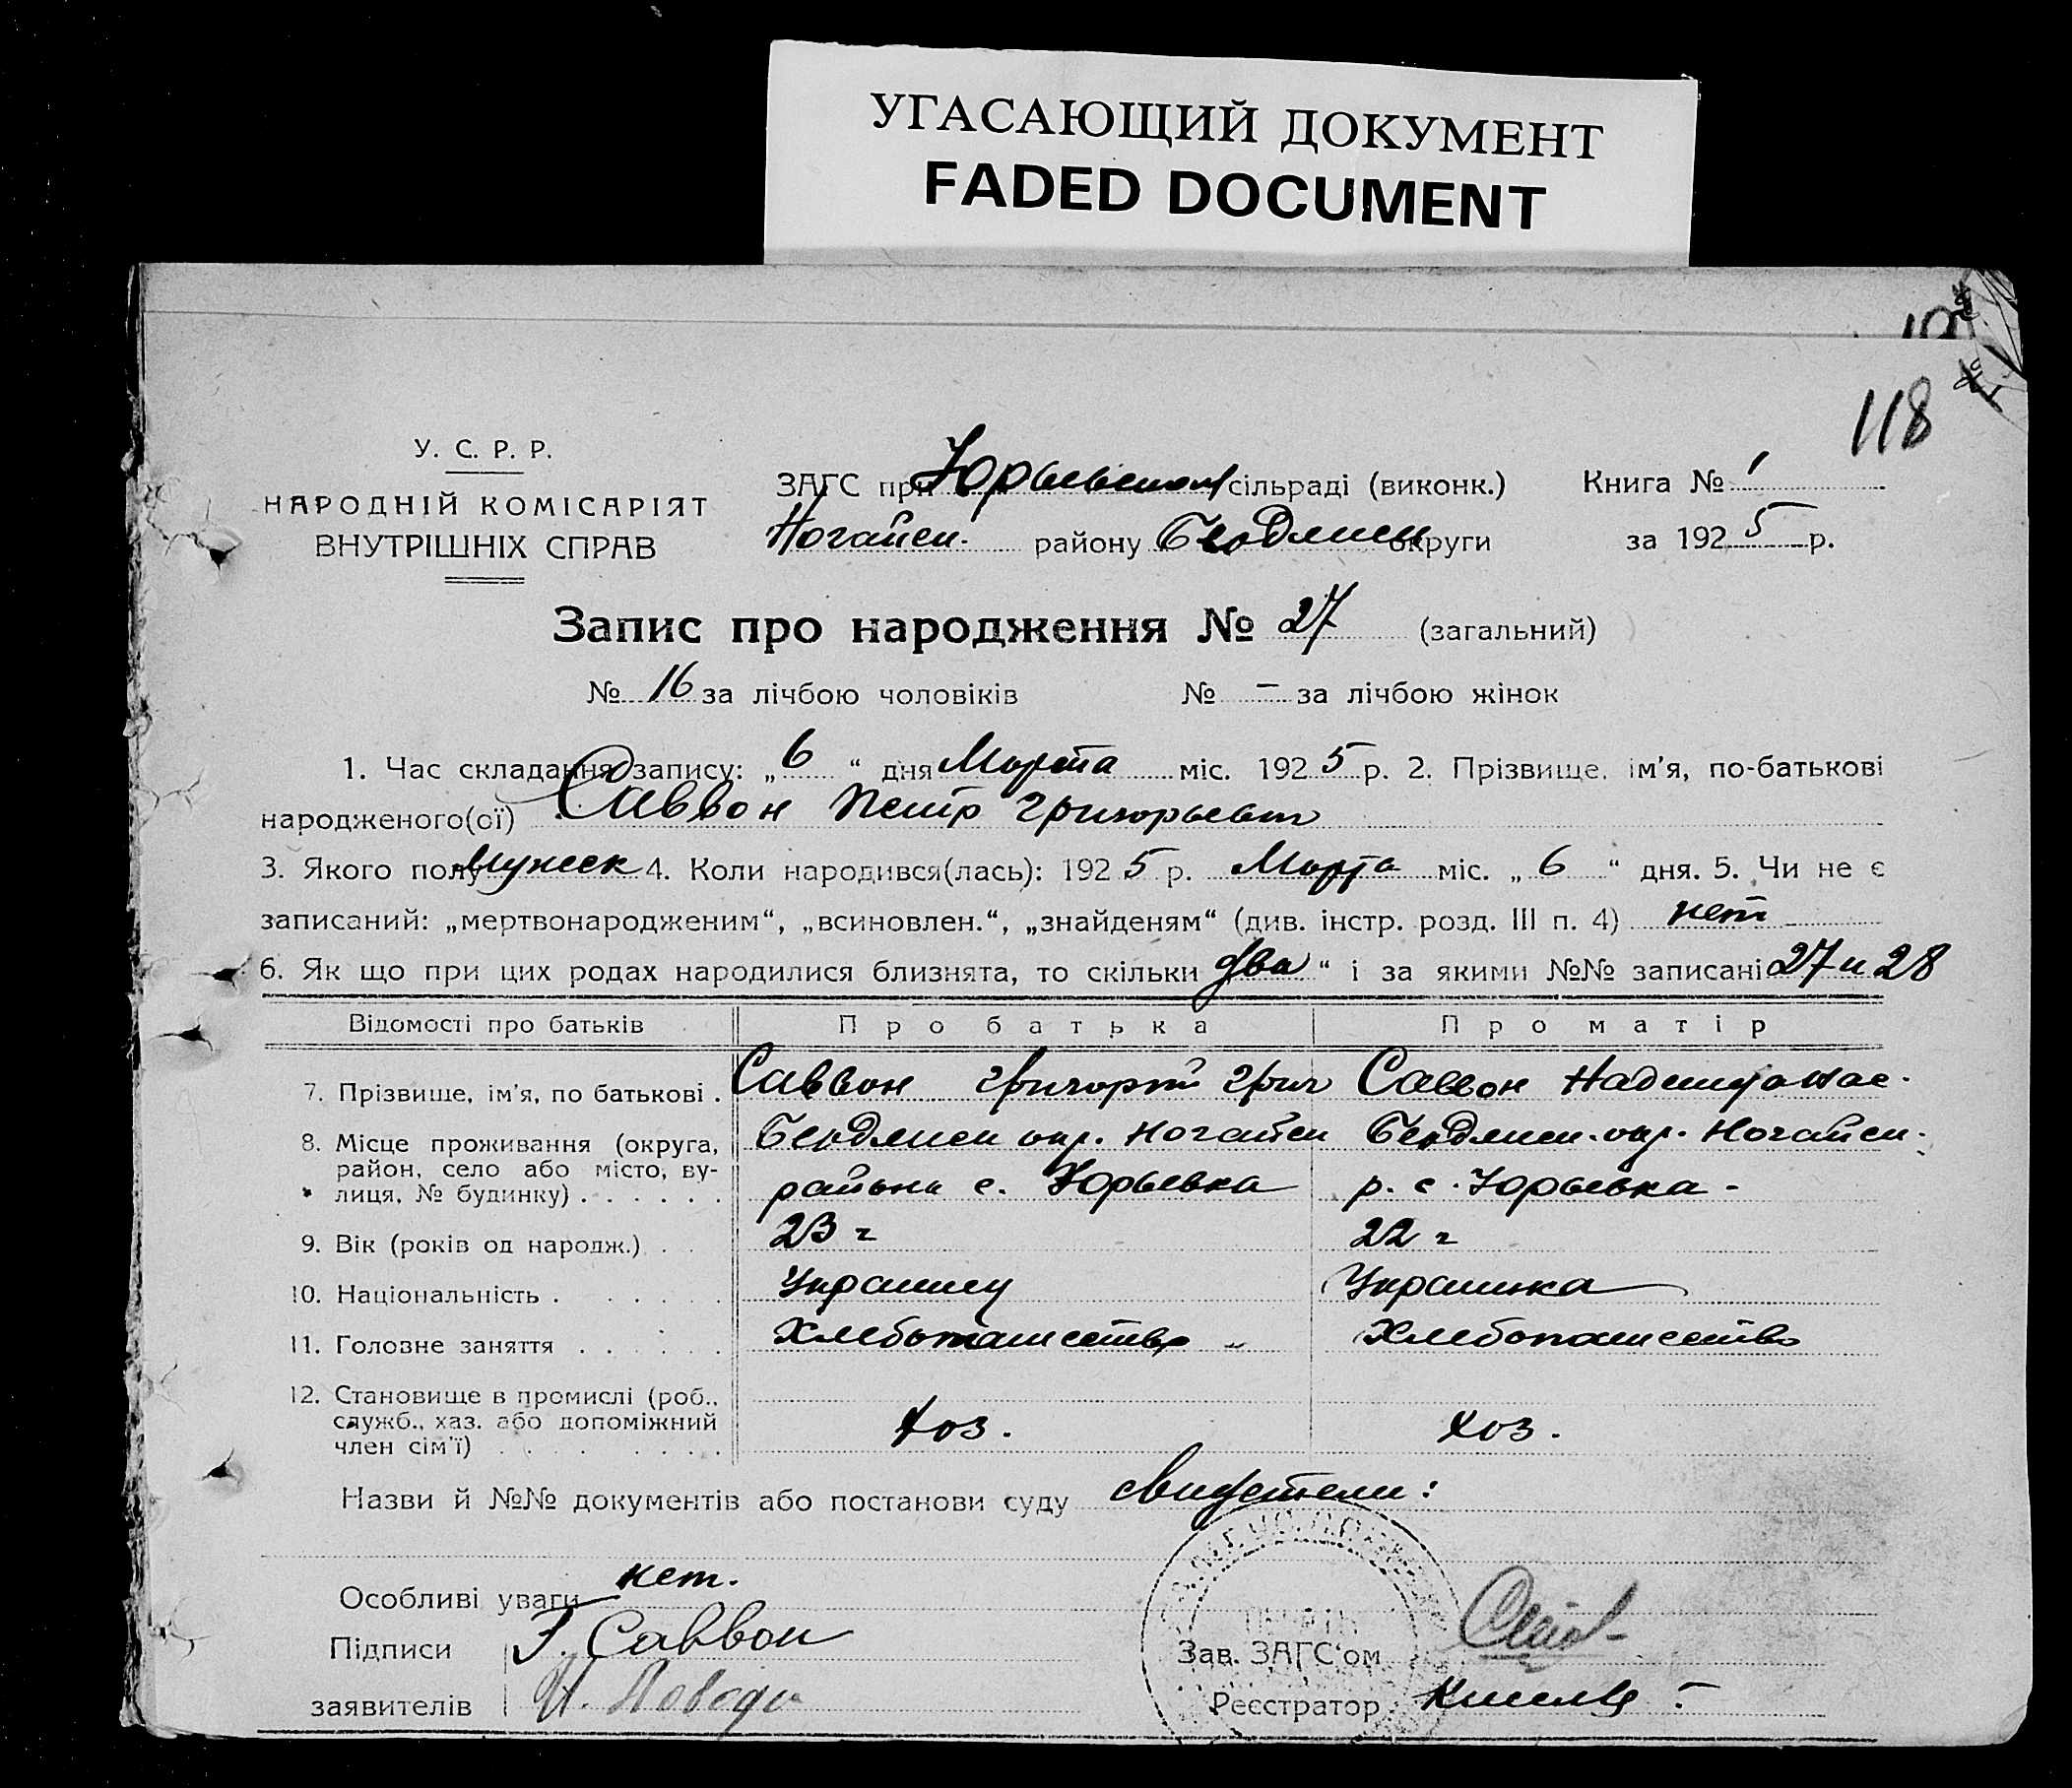 УГАСАЮЩИЙ ДОКУМЕНТ
FADED DOCUMENT
118
У. С. Р. Р.
НАРОДНІЙ КОМІСАРІЯТ
ВНУТРІШНІХ СПРАВ
ЗАГС при Юрьевском сільраді (виконк.) Книга № 1
Ногайск. району Бердянск округи за 1925 р.
Запис про народження № 27 (загальний)
№ 16 за лічбою чоловіків № – за лічбою жінок
1. Час складання запису: „6“ дня Марта міс. 1925 р. 2. Прізвище, ім'я, по-батькові
народженого(ої) Саввон Петр Григорьевич
3. Якого полу мужеск 4. Коли народився(лась): 1925 р. Марта міс. „6“ дня. 5. Чи не є
записаний: „мертвонародженим“, „всиновлен.“, „знайденям“ (див. інстр. розд. III п. 4) нет
6. Як що при цих родах народилися близнята, то скільки два“ і за якими №№ записані 27 и 28
Відомості про батьків Про батька Про матір
7. Прізвище, ім'я, по батькові . Саввон Григорий Григ Саввон Надежда
8. Місце проживання (округа, Бердянск окр. Ногайск Бердянск. окр. Ногайск.
район, село або місто, ву- района с. Юрьевка р. с. Юрьевка -
лиця, № будинку) . . . . . .
9. Вік (років од народж.) . . 23 г 22 г
10. Національність . . . . . . Украинец Украинка
11. Головне заняття . . . . . . Хлебопашество „ Хлебопашество
12. Становище в промислі (роб.,
служб., хаз. або допоміжний хоз. хоз.
член сім'ї) . . . . . . .
Назви й №№ документів або постанови суду свидетели:
Особливі уваги нет.
Підписи Г. Саввон Зав. ЗАГС'ом
заявителів Реєстратор